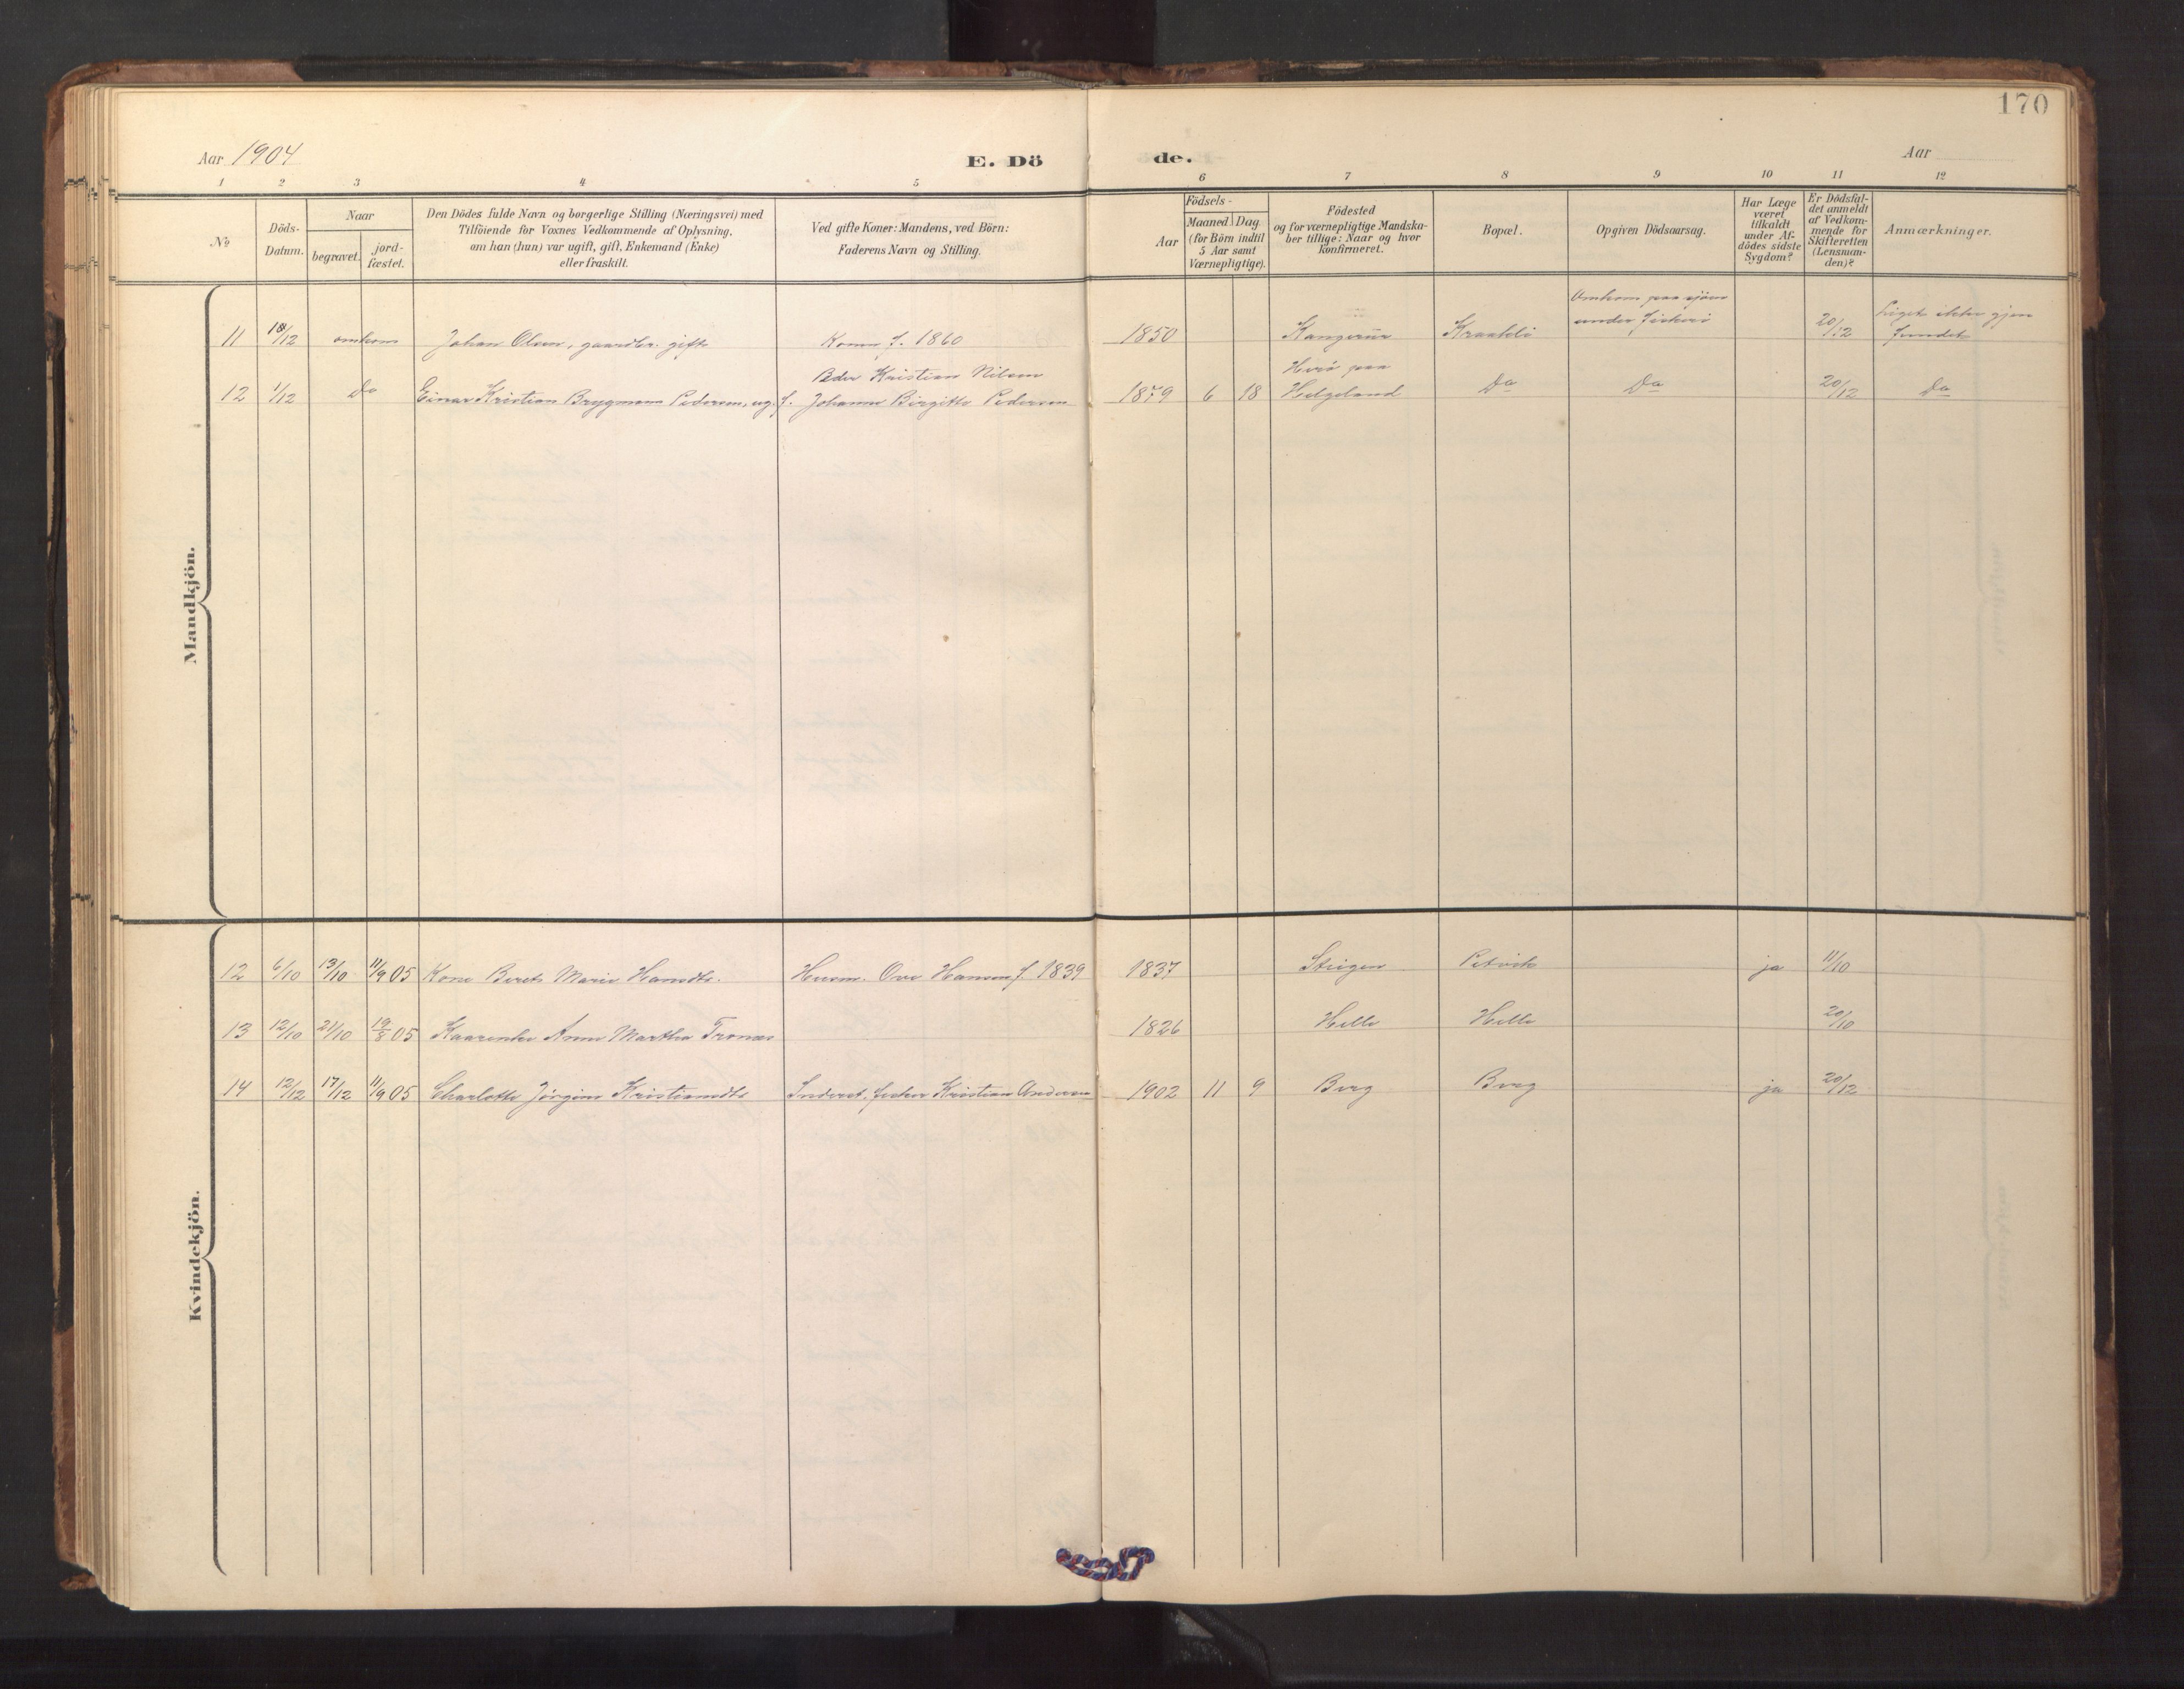 170
Aar 1904
E. Dö de.
Aar
1 2 3 4 5 6 7 8 9 10 11 12
No
Döds-
Datum.
Naar
begravet.
jord-
fæstet.
Den Dödes fulde Navn og borgerlige Stilling (Næringsvei) med
Tilföiende for Voxnes Vedkommende af Oplysning,
om han (hun) var ugift, gift, Enkemand (Enke)
eller fraskilt.
Ved gifte Koner: Mandens, ved Börn:
Faderens Navn og Stilling.
Födsels-
Aar
Maaned. Dag
(for Börn indtil
5 Aar samt
Værnepligtige).
Födested
og for værnepligtige Mandska-
ber tillige: Naar og hvor
konfirmeret.
Bopæl.
Opgiven Dödsaarsag.
Har Læge
været
tilkaldt
under Af-
dödes sidste
Sygdom?
Er Dödsfal-
det anmeldt
af Vedkom-
mende for
Skifteretten
(Lensman-
den)?
Anmærkninger.
Mandkjön.
11 18/12 omkom Johan Olsen, gaardbr. gift Konen f. 1860 1850 Kraakli Omkom paa sjöen
under fiskeri 20/12 Liget ikke gjen
fundet
12 1/12 Do Einar Kristian Brygman Pedersen, ug. f. Peder Kristian Nilsen
Johanne Birgitte Pedersen 1879 6 18 Herö paa
Helgeland Do Do 20/12 Do
Kvindekjön.
12 6/10 13/10 11/9 05 Kone Beret Marie Hansdtr. Husm. Ove Hansen f 1839 1837 Steigen Petvik ja 11/10
13 12/10 21/10 19/8 05 Kaarenke Anne Martha Tronæs 1826 Helle Helle 20/10
14 12/12 17/12 11/9 05 Charlotte Jörgine Kristiansdtr Inderst. fisker Kristian Andersen 1902 11 9 Berg Berg ja 20/12